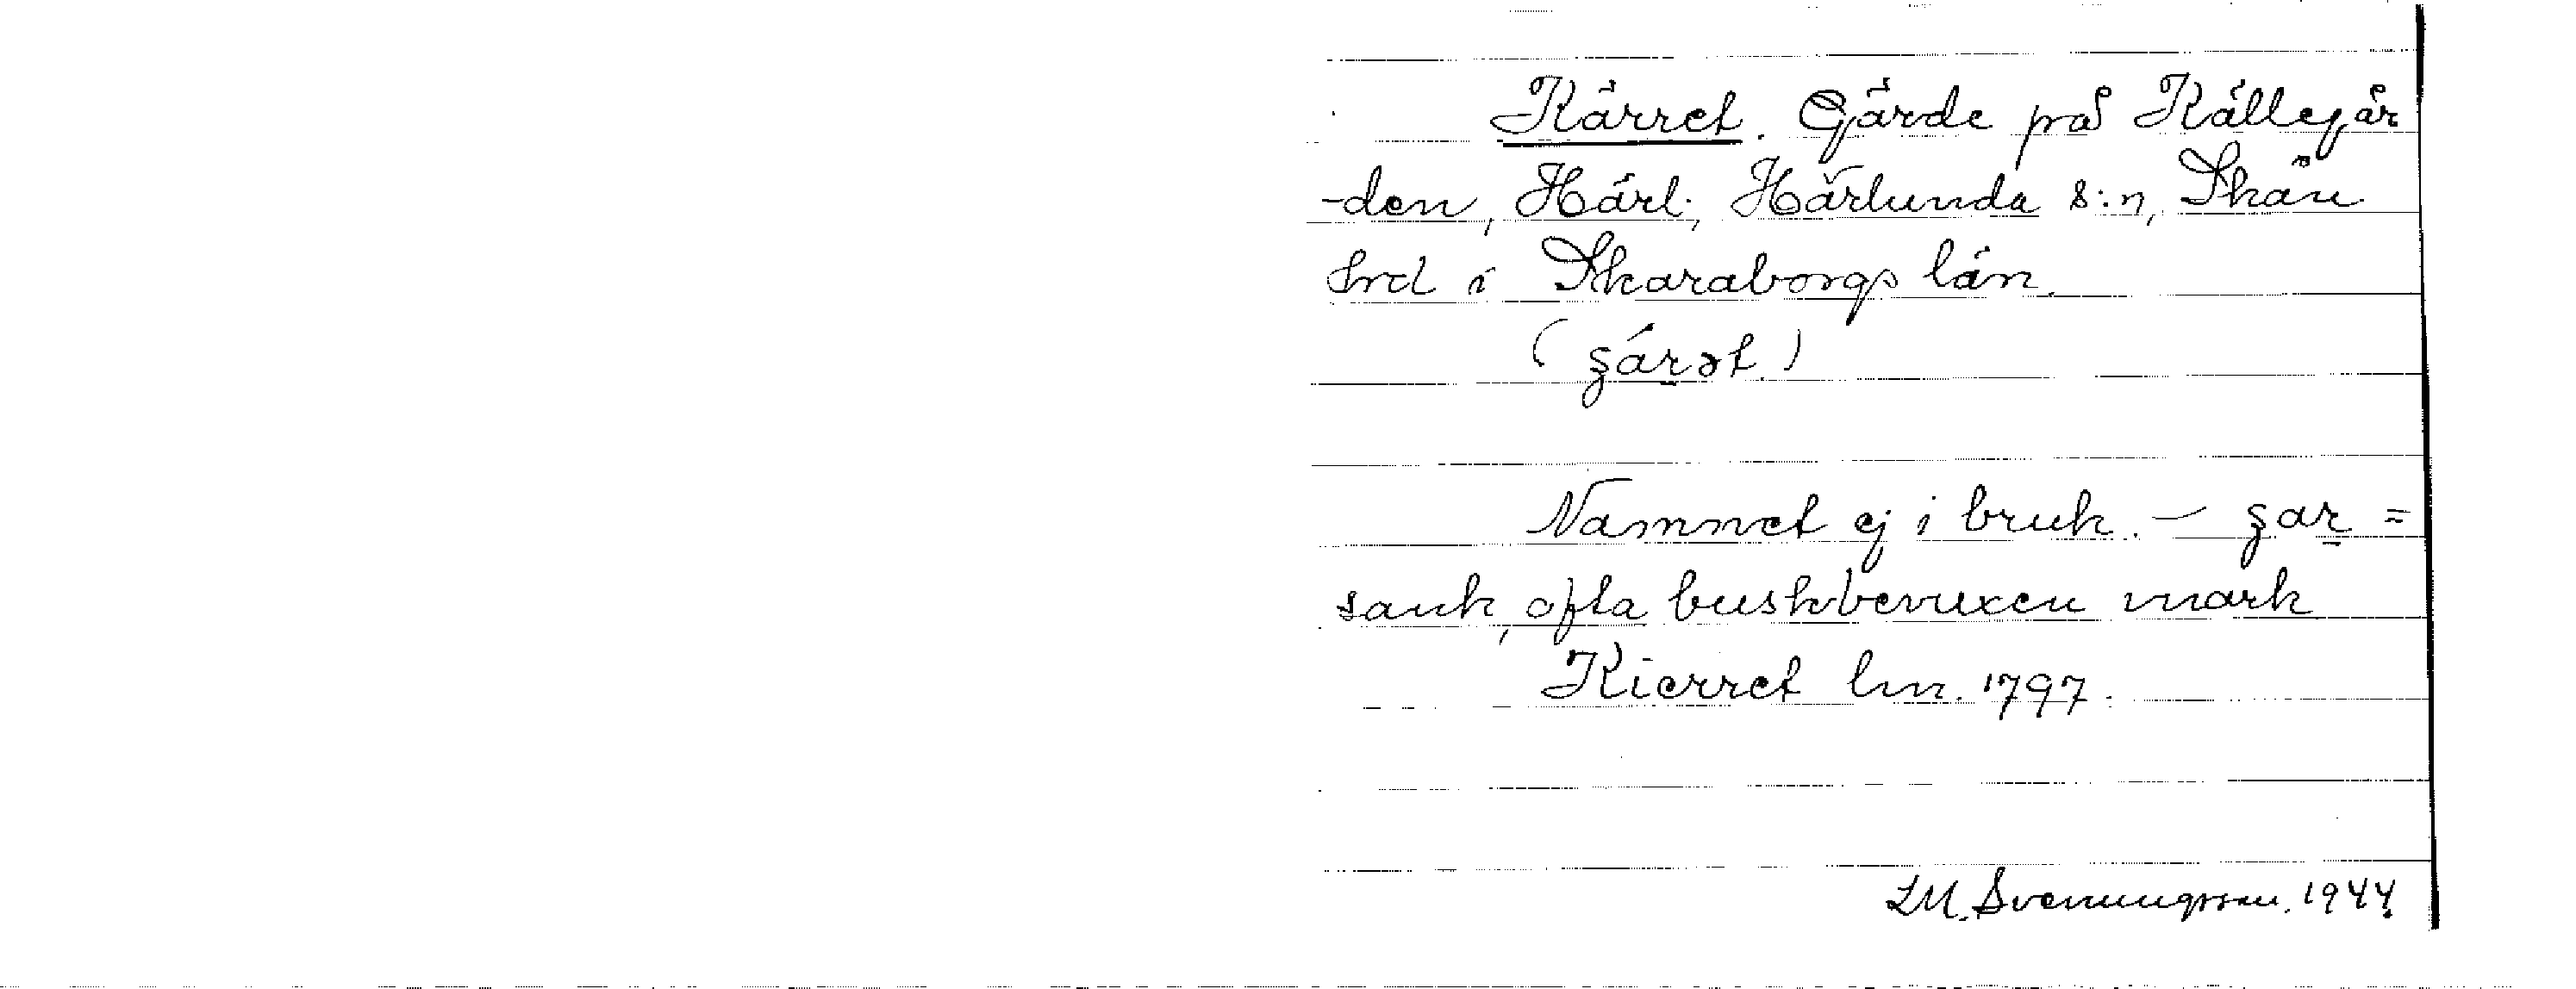 Kärret. Gärde på Källegår
-den, Härl., Härlunda s:n, Skån
hrd i Skaraborgs län.
(şárət.)
Namnet ej i bruk. — şar =
sank, ofta buskbevuxen mark
Kierret lm. 1797.
LM. Svenungsson. 1944.